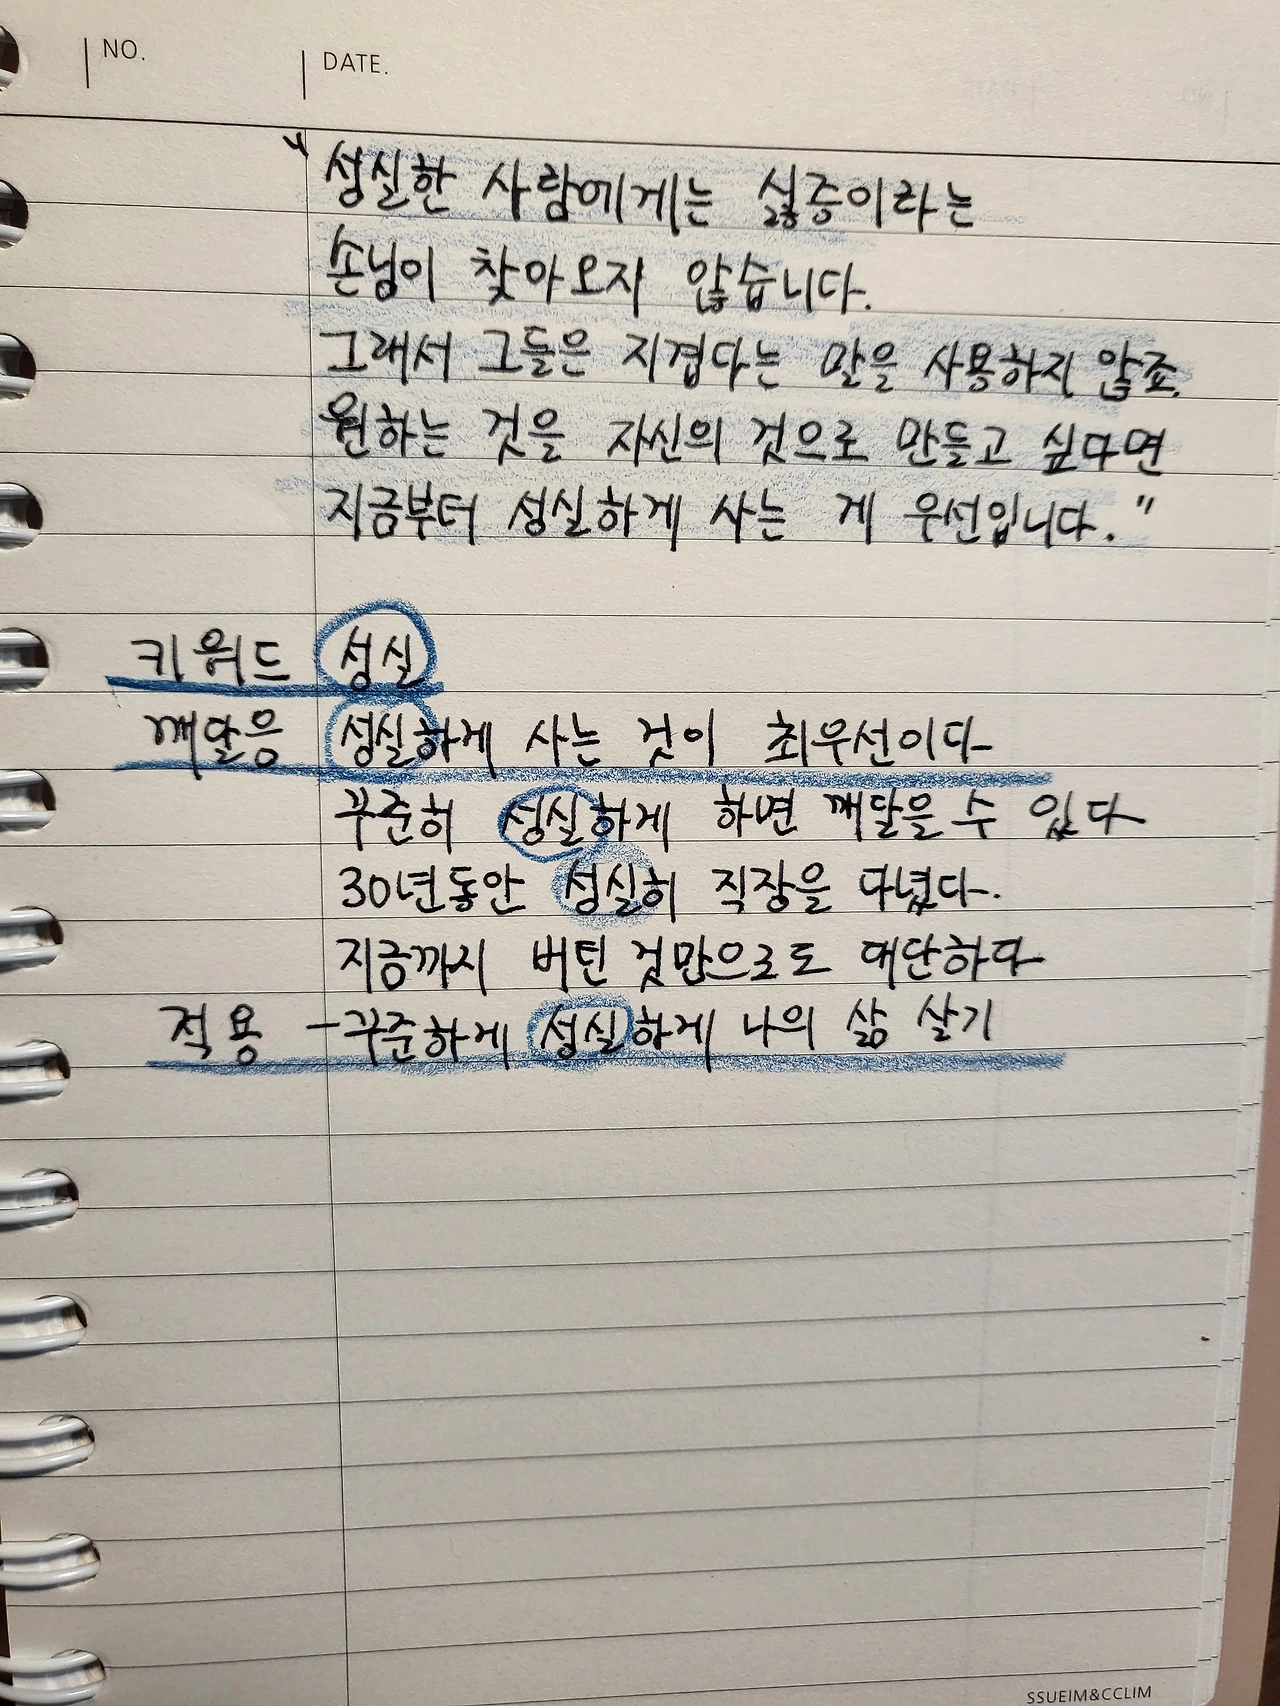 NO.
DATE.
"성실한 사람에게는 싫증이라는
손님이 찾아오지 않습니다.
그래서 그들은 지겹다는 말을 사용하지 않죠.
원하는 것을 자신의 것으로 만들고 싶다면
지금부터 성실하게 사는 게 우선입니다."
키워드 성실
깨달음 성실하게 사는 것이 최우선이다
꾸준히 성실하게 하면 깨달을 수 있다
30년동안 성실히 직장을 다녔다.
지금까지 버틴 것만으로도 대단하다
적용 - 꾸준하게 성실하게 나의 삶 살기
SSUEIM&CCLIM